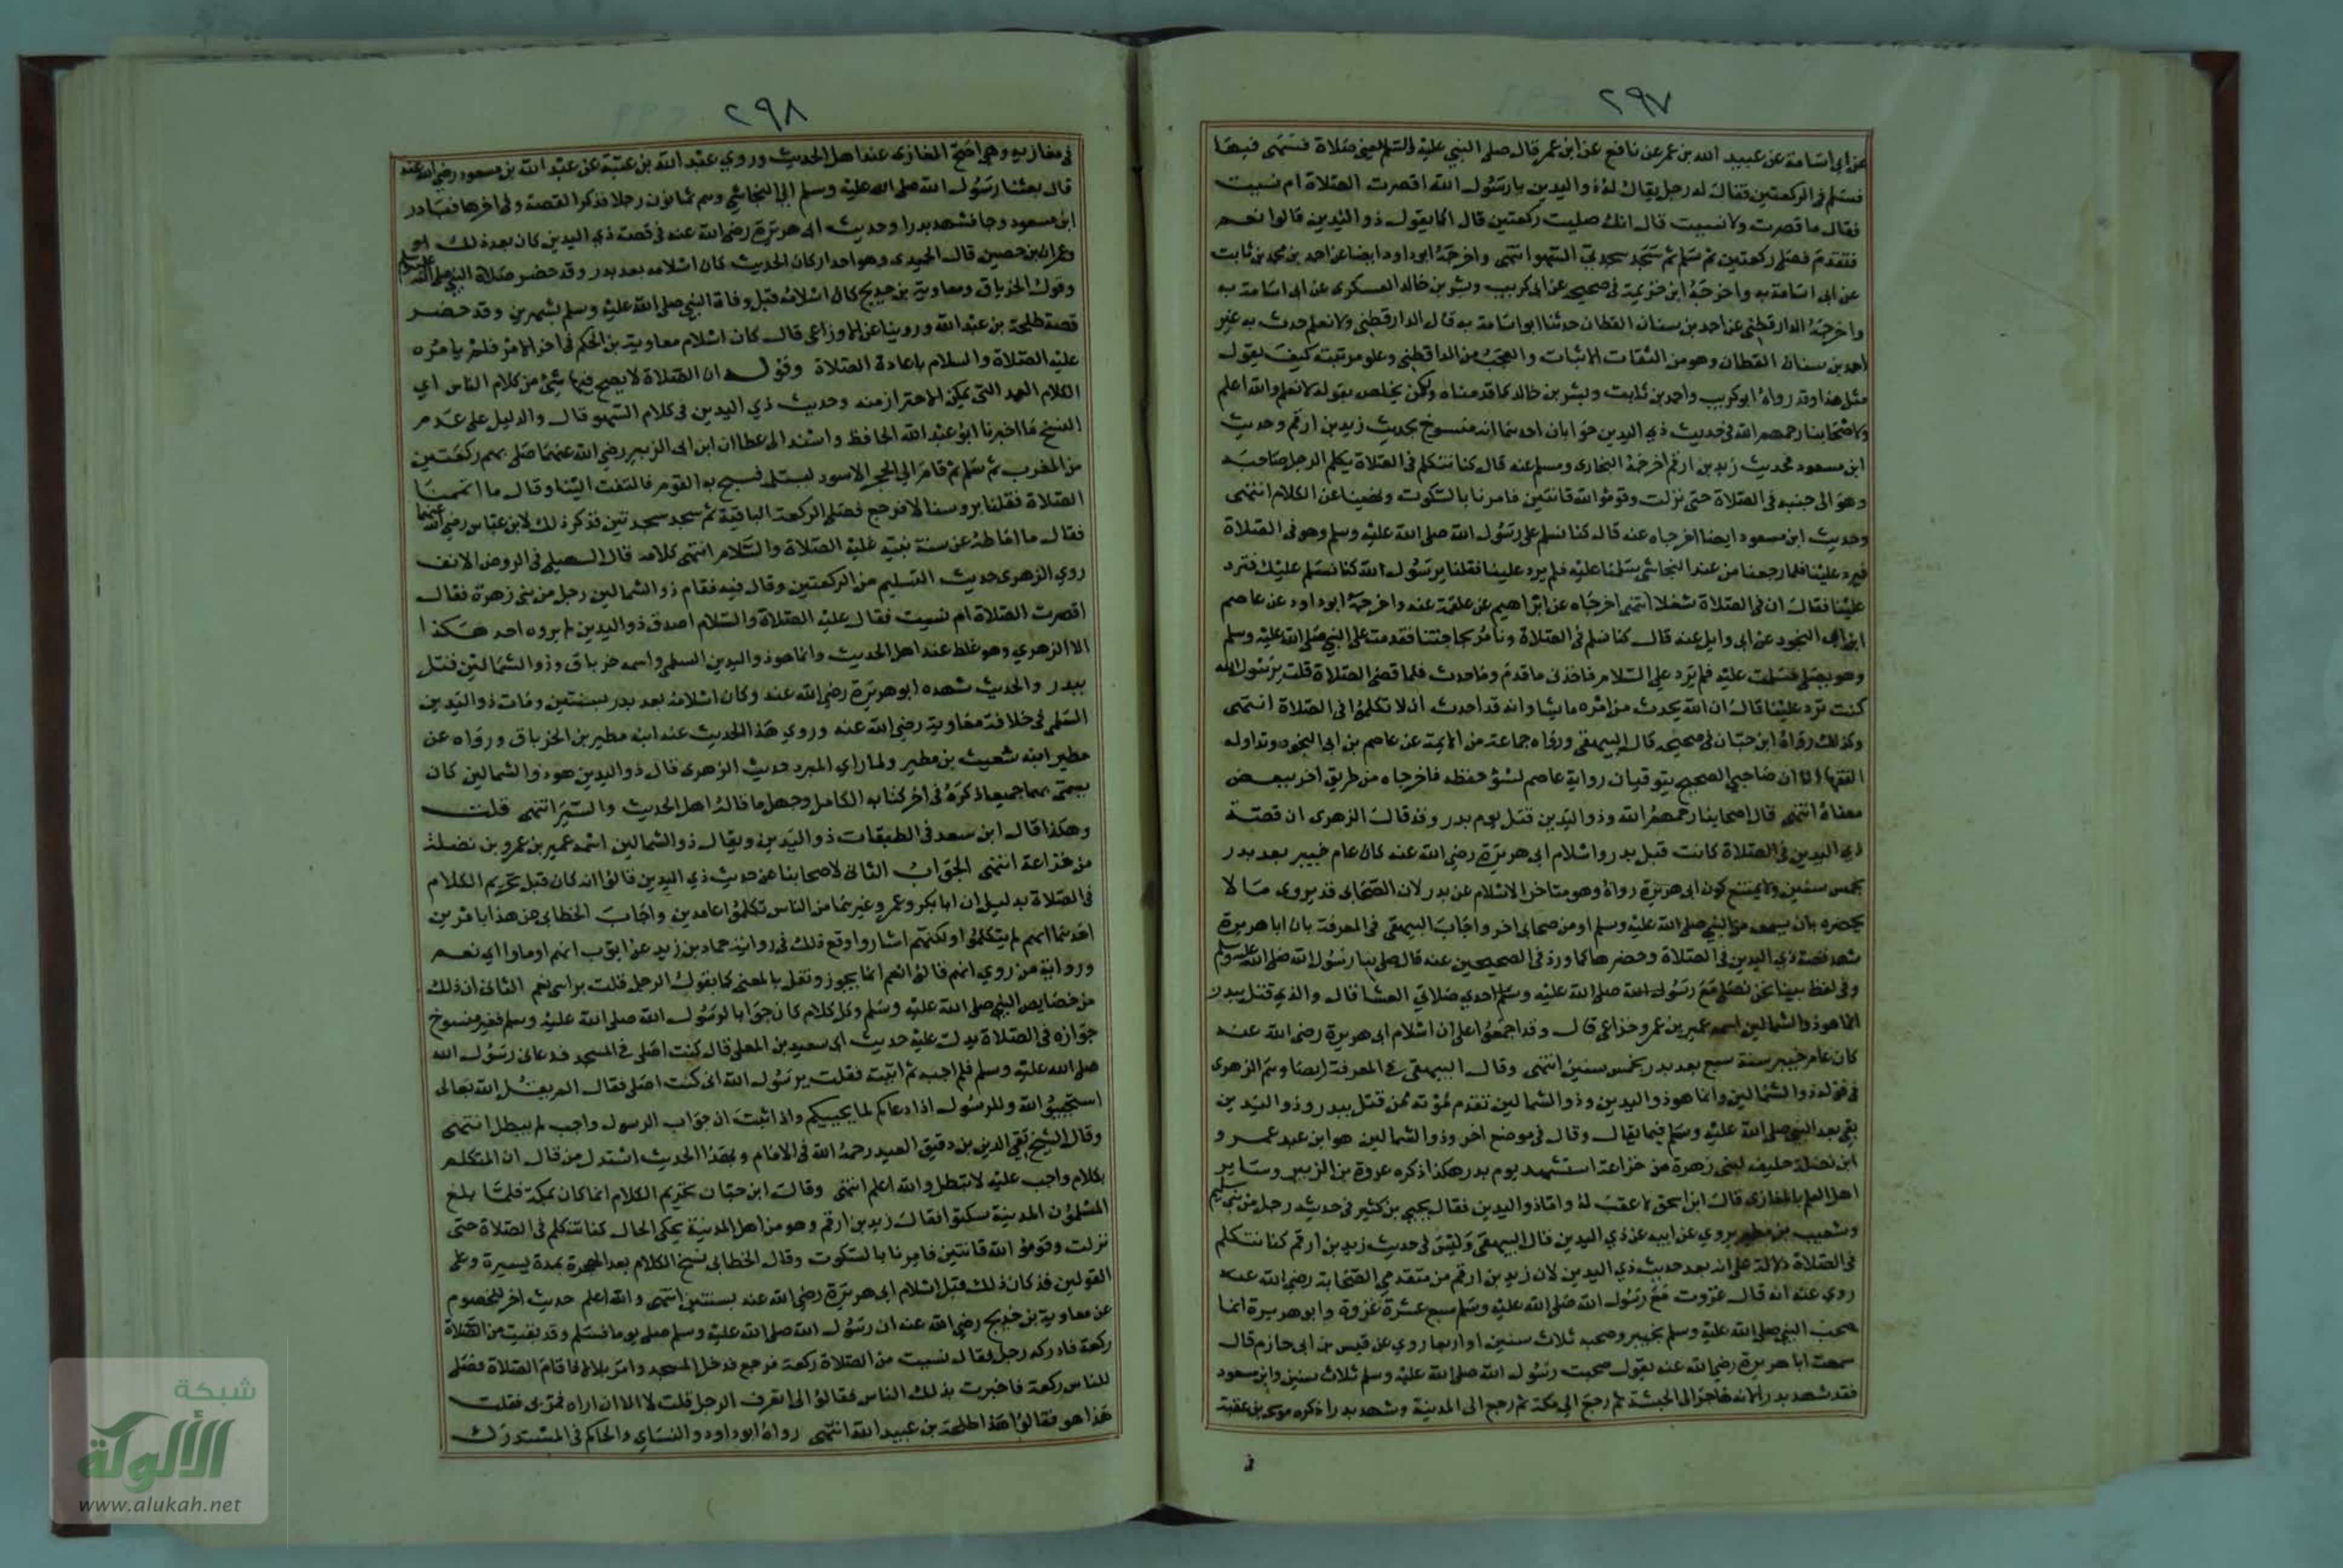 ٢٩٧
عن ابى اسامة عن عبيد الله بن عمر عن نافع عن ابن عمر قال صلى النبي عليه صلاة فسهى فيها
فسلم فى الركعتين فقال له رجل يقال له ذو اليدين يا رسول الله اقصرت الصلاة ام نسيت
فقال ما قصرت ولا نسيت قال انك صليت ركعتين قال اكما يقول ذو اليدين قالوا نعم
فتقدم فصلى ركعتين ثم سلم ثم سجد سجدتي السهو انتهى واخرجه ابو داود ايضا عن احمد بن محمد بن ثابت
عن ابى اسامة به واخرجه ابن خزيمة فى صحيحه عن ابى كريب وبشر بن خالد العسكرى عن ابى اسامة به
واخرجه الدارقطنى عن احمد بن سنان القطان حدثنا ابو اسامة به قال الدارقطنى ولا نعلم حدث به غير
احمد بن سنان القطان وهو من الثقات الاثبات والعجب من الداقطنى وعلو مرتبته كيف يقول
مثل هذا وقد رواه ابو كريب واحمد بن ثابت وبشر بن خالد كما قدمناه ولكن يخلص بقوله لا نعلم والله اعلم
ولاصحابنا رحمهم الله فى حديث ذي اليدين جوابان احدهما انه منسوخ بحديث زيد بن ارقم وحديث
ابن مسعود فحديث زيد بن ارقم اخرجه البخارى ومسلم عنه قال كنا نتكلم فى الصلاة يكلم الرجل صاحبه
وهو الى جنبه فى الصلاة حتى نزلت وقوموا لله قانتين فامرنا بالسكوت ونهينا عن الكلام انتهى
وحديث ابن مسعود ايضا اخرجاه عنه قال كنا نسلم على رسول الله صلى الله عليه وسلم وهو فى الصلاة
فيرد علينا فلما رجعنا من عند النجاشى سلمنا عليه فلم يرد علينا فقلنا يرسول الله كنا نسلم عليك فترد
علينا فقال ان فى الصلاة شغلا انتهى اخرجاه عن ابراهيم عن علقمة عنه واخرجه ابو داود عن عاصم
ابن ابى النجود عن ابى وايل عنه قال كنا نسلم فى الصلاة ونامر بحاجتنا فقدمت على النبي صلى الله عليه وسلم
وهو يصلى فسلمت عليه فلم يرد علي السلام فاخذنى ما قدم وما حدث فلما قضى الصلاة قلت يرسول الله
كنت ترد علينا قال ان الله يحدث من امره ما يشا وانه قد احدث ان لا تكلموا فى الصلاة انتهى
وكذلك رواه ابن حبان فى صحيحه قال البيهقى ورواه جماعة من الايمة عن عاصم بن ابى النجود وتداوله
الفقها الا ان صاحبي الصحيح يتوقيان رواية عاصم لسؤ حفظه فاخرجاه من طريق اخر ببعض
معناه انتهى قال اصحابنا رحمهم الله وذو اليدين قتل يوم بدر وقد قال الزهرى ان قصة
ذي اليدين فى الصلاة كانت قبل بدر واسلام ابى هريرة رضي الله عنه كان عام خيبر بعد بدر
بخمس سنين ولا يمتنع كون ابى هريرة رواه وهو متاخر الاسلام عن بدر لان الصحابى قد يروى ما لا
يحضره بان يسمعه من النبي صلى الله عليه وسلم او من صحابى اخر واجاب البيهقى فى المعرفة بان ابا هريرة
شهد قصة ذي اليدين فى الصلاة وحضرها كما ورد فى الصحيحين عنه قال صلى بنا رسول الله صلى الله عليه وسلم
وفى لفظ بينا نحن نصلى مع رسول الله صلى الله عليه وسلم احدي صلاتي العشا قال والذي قتل ببدر
انما هو ذو الشمالين اسمه عمير بن عمرو خزاعى قال وقد اجمعوا على ان اسلام ابى هريرة رضى الله عنه
كان عام خيبر سنة سبع بعد بدر بخمس سنين انتهى وقال البيهقى في المعرفة ايضا وهم الزهرى
فى قوله ذو الشمالين وانما هو ذو اليدين وذو الشمالين تقدم موته فمن قتل ببدر وذو اليدين
بقي بعد النبي صلى الله عليه وسلم فيما يقال وقال فى موضع اخر وذو الشمالين هو ابن عبد عمرو
ابن نضلة حليف لبنى زهرة من خزاعة استشهد يوم بدر هكذا ذكره عروة بن الزبير وساير
اهل العلم بالمغازى قال ابن اسحق لا عقب له واما ذو اليدين فقال يحيي بن كثير فى حديثه رجل من بني سليم
وشعيب بن مطير يروي عن ابيه عن ذي اليدين قال البيهقى وليس فى حديث زيد بن ارقم كنا نتكلم
فى الصلاة دلالة على انه بعد حديث ذي اليدين لان زيد بن ارقم من متقدمي الصحابة رضي الله عنه
روي عنه انه قال غزوت مع رسول الله صلى الله عليه وسلم سبع عشرة غزوة وابو هريرة انما
صحب النبي صلى الله عليه وسلم بخيبر وصحبه ثلاث سنين او اربعا روي عن قيس بن ابى حازم قال
سمعت ابا هريرة رضي الله عنه يقول صحبت رسول الله صلى الله عليه وسلم ثلاث سنين وابن مسعود
فقد شهد بدرا لانه هاجر الى الحبشة ثم رجع الى مكة ثم رجع الى المدينة وشهد بدرا ذكره موسى بن عقبة
فى
٢٩٨
فى مغازيه وهى اصح المغازى عند اهل الحديث وروي عبد الله بن عتبة عن عبد الله بن مسعود رضي الله عنه
قال بعثنا رسول الله صلى الله عليه وسلم الى النجاشي وهم ثمانون رجلا فذكر القصة وفى اخرها فبادر
ابن مسعود وجا فشهد بدرا وحديث ابى هريرة رضي الله عنه فى قصة ذي اليدين كان بعد ذلك
وعمران بن حصين قال الحميدى وهو احد اركان الحديث كان اسلامه بعد بدر وقد حضر صلاة النبي صلى الله عليه وسلم
وقول الخرباق ومعاوية بن حديج كان اسلامه قبل وفاة النبي صلى الله عليه وسلم بشهرين وقد حضر
قصة طلحة بن عبد الله وروينا عن الاوزاعى قال كان اسلام معاوية بن الحكم فى اخر الامر فلم يامره
عليه الصلاة والسلام باعادة الصلاة وقوله ان الصلاة لا يصح فيها شئ من كلام الناس اي
الكلام العمد التى يمكن الاحتراز منه وحديث ذي اليدين فى كلام السهو قال والدليل على عدم
النسخ ما اخبرنا ابو عبد الله الحافظ واسند الى عطا ان ابن ابى الزبير رضي الله عنهما صلى بهم ركعتين
من المغرب ثم سلم ثم قام الى الحجر الاسود ليستلمه فسبح به القوم فالتفت الينا وقال ما اتممنا
الصلاة فقلنا بروسنا لا فرجع فصلى الركعة الباقية ثم سجد سجدتين فذكر ذلك لابن عباس رضي الله عنهما
فقال ما اماط عن سنة نبيه عليه الصلاة والسلام انتهى كلامه قال السهيلى فى الروض الانف
روي الزهرى حديث التسليم من الركعتين وقال فيه فقام ذو الشمالين رجل من بنى زهرة فقال
اقصرت الصلاة ام نسيت فقال عليه الصلاة والسلام اصدق ذو اليدين لم يروه احد هكذا
الا الزهري وهو غلط عند اهل الحديث وانما هو ذو اليدين السلمى واسمه خرباق وذو الشمالين قتل
ببدر والحديث شهده ابو هريرة رضي الله عنه وكان اسلامه بعد بدر بسنتين ومات ذو اليدين
السلمى فى خلافة معاوية رضي الله عنه وروي هذا الحديث عنه ابنه مطير بن الخرباق ورواه عن
مطير ابنه شعيث بن مطير ولما راي المبرد حديث الزهرى قال ذو اليدين هو ذو الشمالين كان
يسمى بهما جميعا ذكره فى اخر كتابه الكامل وجهل ما قاله اهل الحديث والسير انتهى قلت
وهكذا قال ابن سعد فى الطبقات ذو اليدين ويقال ذو الشمالين اسمه عمير بن عمرو بن نضلة
من خزاعة انتهى الجواب الثانى لاصحابنا عن حديث ذي اليدين قالوا انه كان قبل تحريم الكلام
فى الصلاة بدليل ان ابا بكر وعمر وغيرهما من الناس تكلموا عامدين واجاب الخطابى عن هذا بامرين
احدهما انهم لم يتكلموا ولكنهم اشاروا وقع ذلك فى رواية حماد بن زيد عن ايوب انهم اوماوا اي نعم
ورواية من روي انهم قالوا نعم انما يجوز ونقل بالمعنى كما يقول الرجل قلت براسى نعم الثانى ان ذلك
من خصايص النبي صلى الله عليه وسلم وكل كلام كان جوابا لرسول الله صلى الله عليه وسلم فغير منسوخ
جوازه فى الصلاة يدل عليه حديث ابى سعيد بن المعلى قال كنت اصلى فى المسجد فدعانى رسول الله
صلى الله عليه وسلم فلم اجب ثم اتيته فقلت يرسول الله انى كنت اصلى فقال الم يقل الله تعالى
استجيبوا لله وللرسول اذا دعاكم لما يحييكم واذا ثبت ان جواب الرسول واجب لم يبطل انتهى
وقال الشيخ تقي الدين بن دقيق العيد رحمه الله فى الامام وبهذا الحديث استدل من قال ان المتكلم
بكلام واجب عليه لا تبطل والله اعلم انتهى وقال ابن حبان تحريم الكلام انما كان بمكة فلما بلغ
المسلمون المدينة سكتوا فقال زيد بن ارقم وهو من اهل المدينة يحكى الحال كنا نتكلم فى الصلاة حتى
نزلت وقوموا لله قانتين فامرنا بالسكوت وقال الخطابى نسخ الكلام بعد الهجرة بمدة يسيرة وعلى
القولين فقد كان ذلك قبل اسلام ابى هريرة رضي الله عنه بسنتين انتهى والله اعلم حديث اخر للخصوم
عن معاوية بن خديج رضي الله عنه ان رسول الله صلى الله عليه وسلم صلى يوما فسلم وقد بقيت من الصلاة
ركعة فادركه رجل فقال نسيت من الصلاة ركعة فرجع فدخل المسجد وامر بلالا فاقام الصلاة فصلى
للناس ركعة فاخبرت بذلك الناس فقالوا لى اتعرف الرجل قلت لا الا ان اراه فمر بى فقلت
هذا هو فقالوا هذا طلحة بن عبيد الله انتهى رواه ابو داود والنساي والحاكم فى المستدرك
شبكة
الألوكة
www.alukah.net